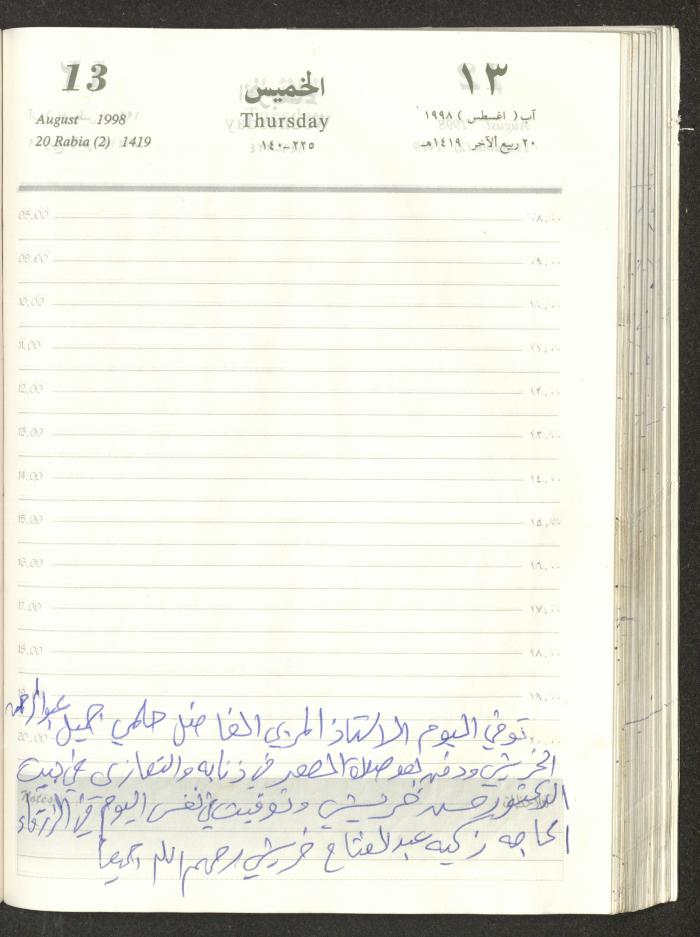 13 الخميس ١٣
August 1998 Thursday آب ( اغسطس ) ١٩٩٨
20 Rabia (2) 1419 ٢٢٥-١٤٠ ٢٠ ربيع الآخر ١٤١٩هـ
08.00 ٠٨.٠٠
09.00 ٠٩.٠٠
10.00 ١٠.٠٠
11.00 ١١.٠٠
12.00 ١٢.٠٠
13.00 ١٣.٠٠
14.00 ١٤.٠٠
15.00 ١٥.٠٠
16.00 ١٦.٠٠
17.00 ١٧.٠٠
18.00 ١٨.٠٠
١٩.٠٠
توفي اليوم الاستاذ المربي الفاضل حلمي جميل عبدالرحمن
20.00
الخريشي ودفن بعد صلاة العصر في ذنابه والتعازي في بيت
Notes
الدكتور حسن خريشي وتوفيت في نفس اليوم في الزرقاء
الحاجه زكيه عبدالفتاح خريشي رحمهم الله جميعا